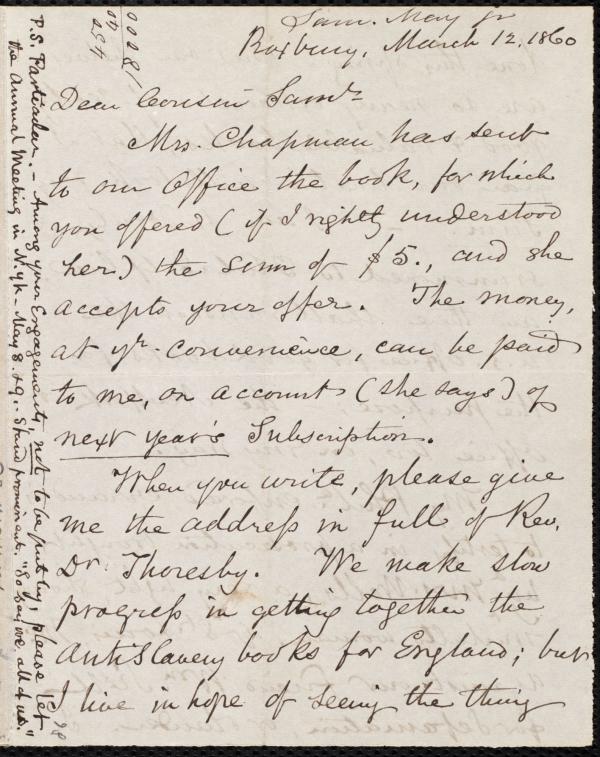 Sam. May Jr
Roxbury, March 12, 1860
Dear Cousin Saml.
Mrs. Chapman has sent
to our Office the book, for which
you offered (if I rightly understood
her) the sum of $5., and she
accepts your offer. The money,
at yr. convenience, can be paid
to me, on account (she says) of
next year's Subscription.
When you write, please give
me the address in full of Rev.
Dr. Thoresby. We make slow
progress in getting together the
AntiSlavery books for England; but
I live in hope of seeing the thing
P.S. Particular. - Among your Engagements, not to be put by, please let
the Annual Meeting in N.Yk - May 8. & 9. Stand prominent. "So say we all of us."